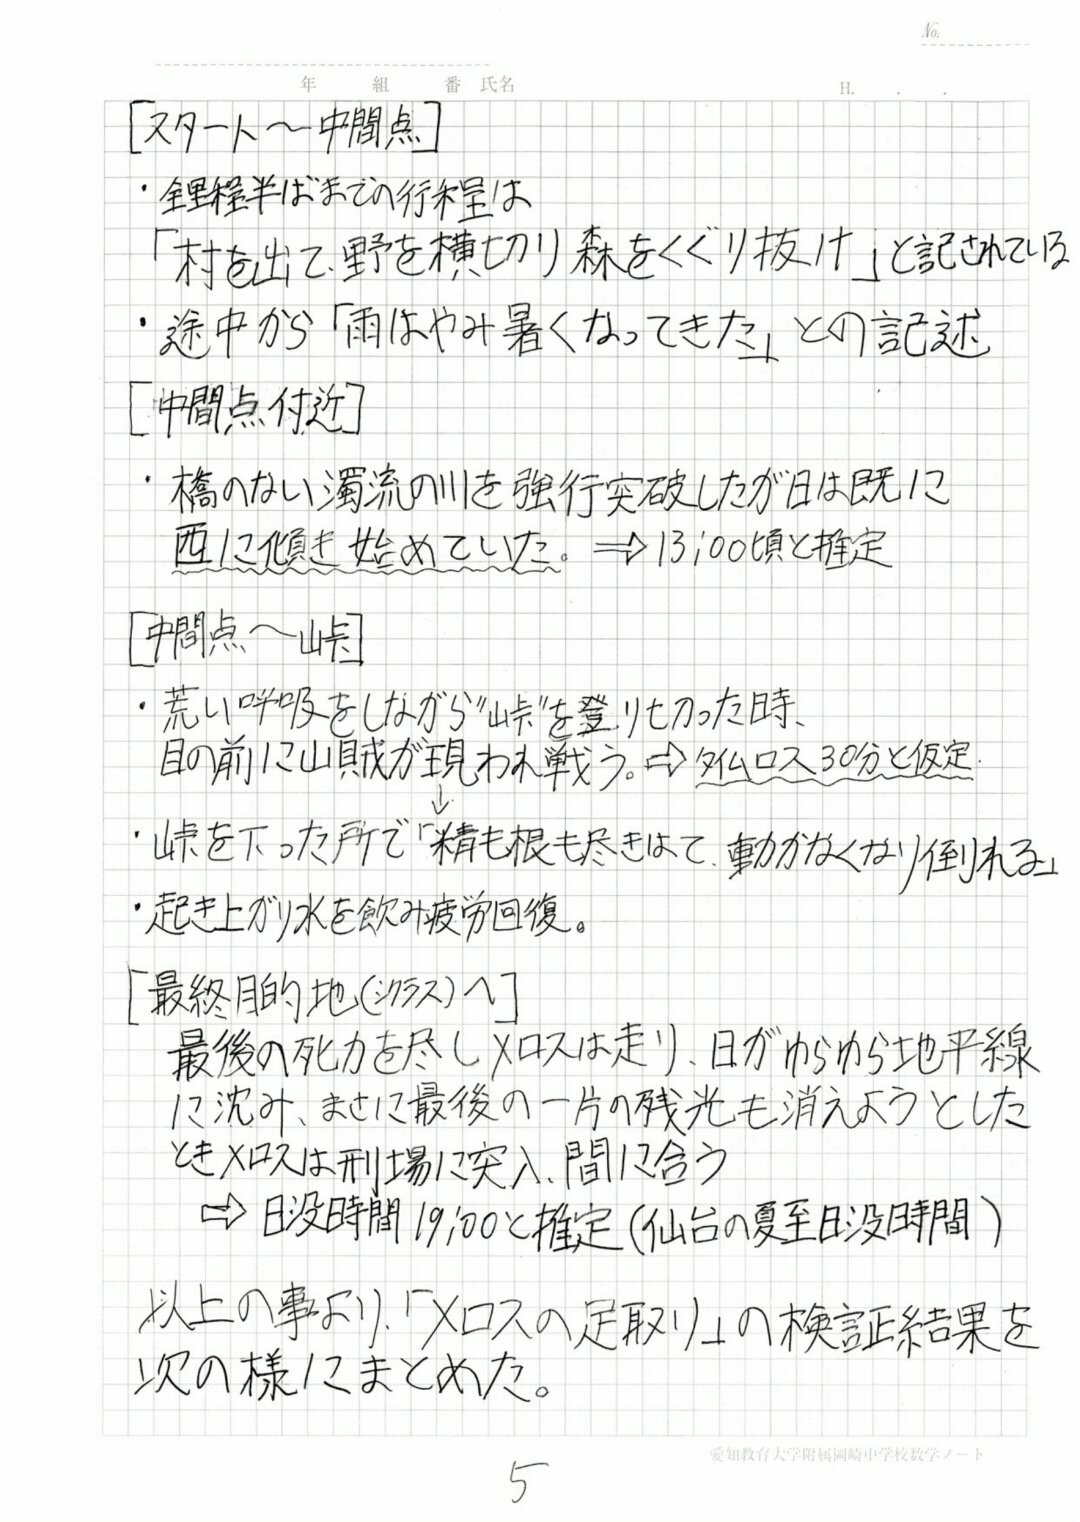 No.
年 組 番 氏名 H. . .
[スタート〜中間点]
・全里程半ばまでの行程は
「村を出て、野を横切り森をくぐり抜け」と記されている
・途中から「雨はやみ暑くなってきた」との記述
[中間点付近]
・橋のない濁流の川を強行突破したが日は既に
西に傾き始めていた。⇒13:00頃と推定
[中間点〜峠]
・荒い呼吸をしながら"峠"を登り切った時、
目の前に山賊が現われ戦う。⇒タイムロス30分と仮定.
↓
・峠を下った所で「精も根も尽きはて、動かなくなり倒れる」
・起き上がり水を飲み疲労回復。
[最終目的地(シクラス)へ]
最後の死力を尽しメロスは走り、日がゆらゆら地平線
に沈み、まさに最後の一片の残光も消えようとした
ときメロスは刑場に突入、間に合う
⇒日没時間19:00と推定(仙台の夏至日没時間)
以上の事より、「メロスの足取り」の検証結果を
次の様にまとめた。
愛知教育大学附属岡崎中学校数学ノート
5